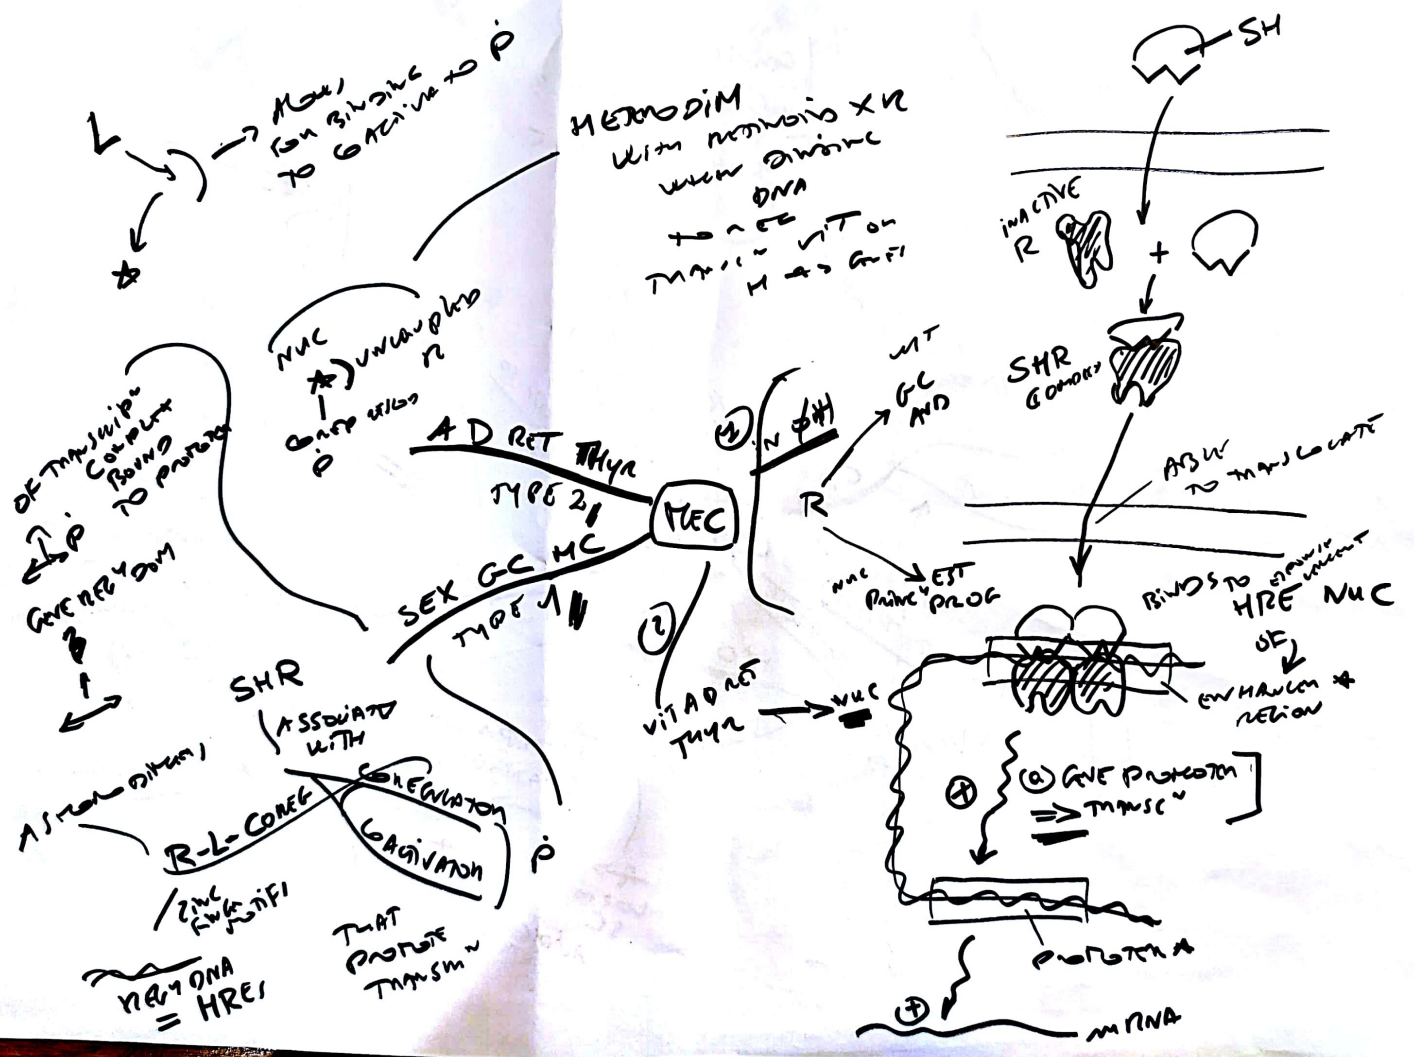 L
ALLOWS
FOR BINDING
TO COACTIVATO P
HETERODIM
WITH RETINOID X R
WHEN BINDING
DNA
TO REG
TRANSC VIT OR
H AS GENES
NUC
UNCOUPLED
R
COREPRESSOR
P
OF TRANSCRIP
COMPLEX
BOUND
TO PROMOTER
P
GENE REG DOM
A D RET THYR
TYPE 2
MEC
SEX GC MC
TYPE 1
SHR
ASSOCIATED
WITH
COREGULATOR
COACTIVATOR
P
THAT
PROMOTE
TRANSCR
AS HOMODIMERS
R-L-COREG
ZINC
FINGER
MOTIFS
REG DNA
= HREs
1
MT
GC
AND
R
NUC
PRINC
EST
PROG
2
VIT A D RET
THYR
NUC
SH
INACTIVE
R
+
SHR
COMPLEX
ABLE
TO TRANSLOCATE
BINDS TO
HRE NUC
OF
ENHANCER
REGION
+
(a) GENE PROMOTER
=> TRANSC
PROMOTER
+
mRNA